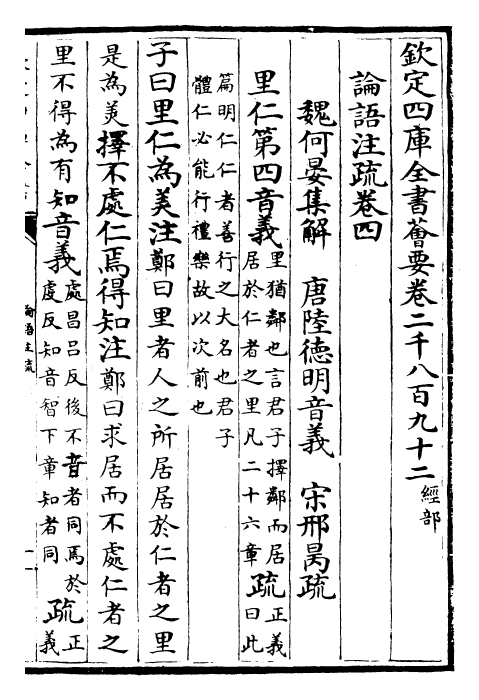 欽定四庫全書薈要卷二千八百九十二經部
論語注疏卷四
魏何晏集解　唐陸德明音義　宋邢昺疏
里仁第四音義里猶鄰也言君子擇鄰而居居於仁者之里凡二十六章疏正義曰此
篇明仁仁者善行之大名也君子
體仁必能行禮樂故以次前也
子曰里仁為美注鄭曰里者人之所居居於仁者之里
是為美擇不處仁焉得知注鄭曰求居而不處仁者之
里不得為有知音義處昌呂反後不音者同焉於虔反知音智下章知者同疏正義
論語注疏